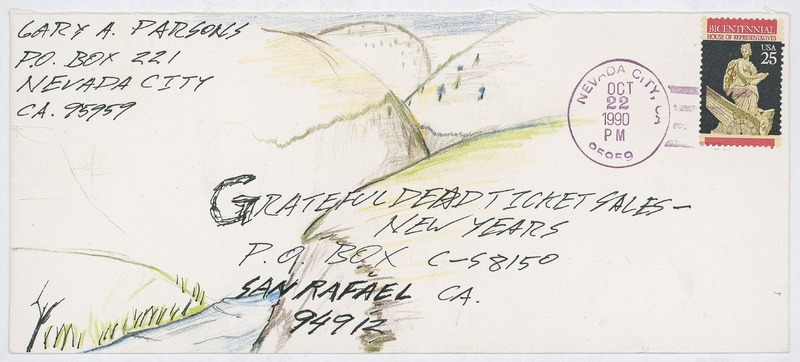 GARY A. PARSONS
P.O. BOX 221
NEVADA CITY
CA. 95959
BICENTENNIAL
HOUSE OF REPRESENTATIVES
USA
25
NEVADA CITY, CA
OCT
22
1990
PM
95959
GRATEFUL DEAD TICKET SALES-
NEW YEARS
P.O. BOX C-S8150
SAN RAFAEL CA.
94912